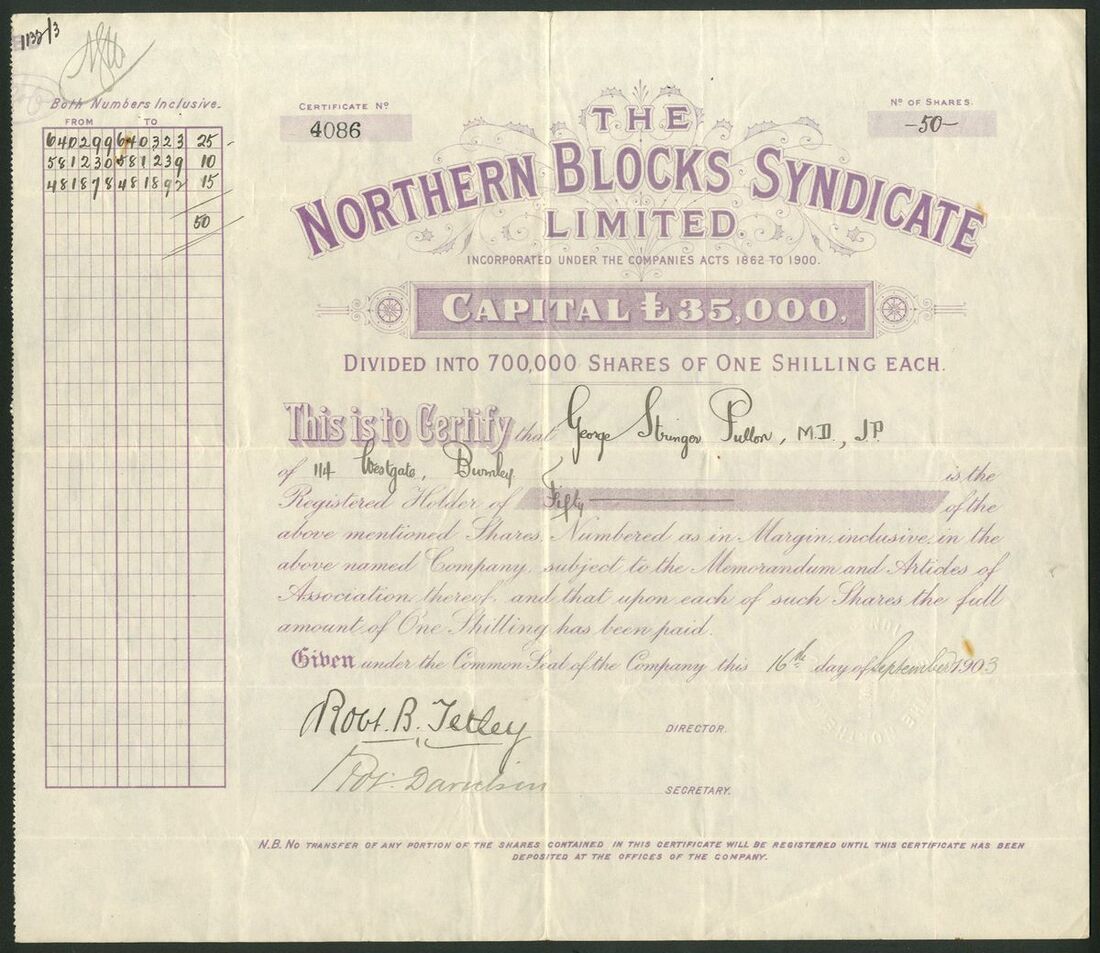 1132/3
Both Numbers Inclusive.
FROM TO
640299 640323 25
581230 581239 10
481878 481892 15
50
CERTIFICATE Nº
4086
Nº OF SHARES.
-50-
THE
NORTHERN BLOCKS SYNDICATE
LIMITED.
INCORPORATED UNDER THE COMPANIES ACTS 1862 TO 1900.
CAPITAL £35,000,
DIVIDED INTO 700,000 SHARES OF ONE SHILLING EACH.
This is to Certify that George Stringer Pullon, M.D., J.P.
of 114 Westgate, Burnley is the
Registered Holder of Fifty of the
above mentioned Shares, Numbered as in Margin, inclusive, in the
above named Company, subject to the Memorandum and Articles of
Association, thereof, and that upon each of such Shares the full
amount of One Shilling has been paid.
Given under the Common Seal of the Company this 16th day of September 1903
Robt. B. Tetley DIRECTOR.
Robt. Davidson SECRETARY.
N.B. NO TRANSFER OF ANY PORTION OF THE SHARES CONTAINED IN THIS CERTIFICATE WILL BE REGISTERED UNTIL THIS CERTIFICATE HAS BEEN
DEPOSITED AT THE OFFICES OF THE COMPANY.